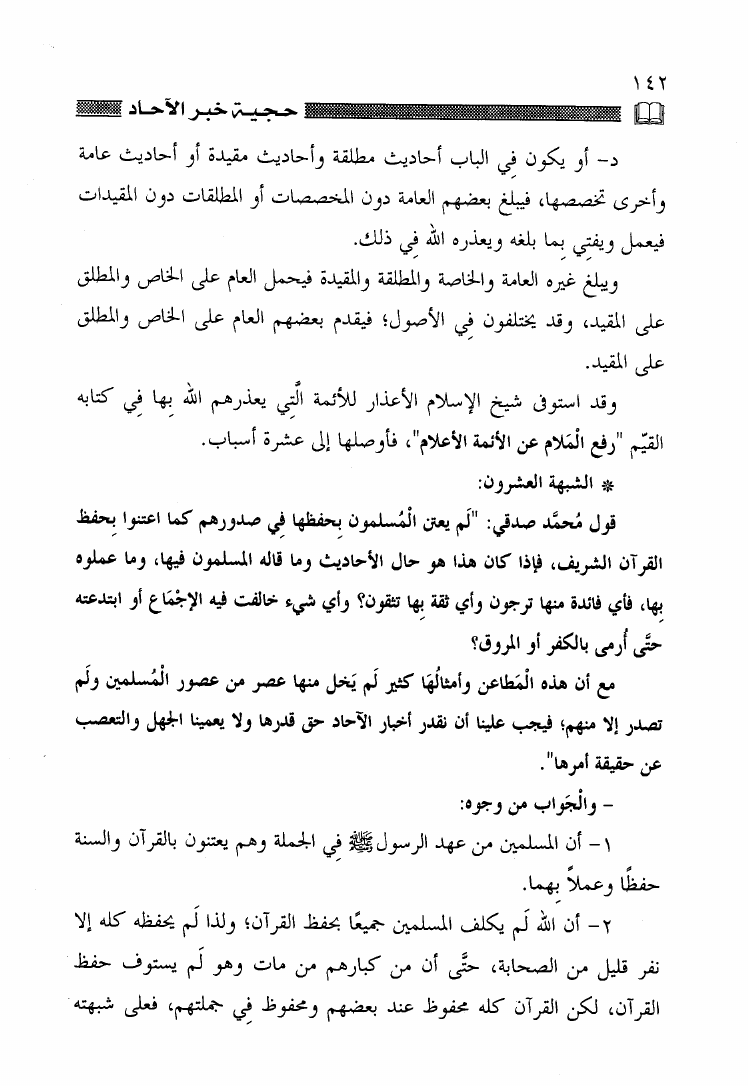 ١٤٢
حجية خبر الآحاد
د- أو يكون فِي الباب أحاديث مطلقة وأحاديث مقيدة أو أحاديث عامة
وأخرى تخصصها، فيبلغ بعضهم العامة دون المخصصات أو المطلقات دون المقيدات
فيعمل ويفتِي بِما بلغه ويعذره الله فِي ذلك.
ويبلغ غيره العامة والخاصة والمطلقة والمقيدة فيحمل العام على الخاص والمطلق
على المقيد، وقد يختلفون فِي الأصول؛ فيقدم بعضهم العام على الخاص والمطلق
على المقيد.
وقد استوفى شيخ الإسلام الأعذار للأئمة الَّتِي يعذرهم الله بِها فِي كتابه
القيّم "رفع الْمَلام عن الأئمة الأعلام"، فأوصلها إلى عشرة أسباب.
* الشبهة العشرون:
قول مُحمَّد صدقي: "لَم يعتن الْمُسلمون بِحفظها فِي صدورهم كما اعتنوا بِحفظ
القرآن الشريف، فإذا كان هذا هو حال الأحاديث وما قاله المسلمون فيها، وما عملوه
بِها، فأي فائدة منها ترجون وأي ثقة بِها تثقون؟ وأي شيء خالفت فيه الإجْمَاع أو ابتدعته
حتَّى أُرمى بالكفر أو المروق؟
مع أن هذه الْمَطاعن وأمثالُهَا كثير لَم يَخل منها عصر من عصور الْمُسلمين ولَم
تصدر إلا منهم؛ فيجب علينا أن نقدر أخبار الآحاد حق قدرها ولا يعمينا الجهل والتعصب
عن حقيقة أمرها".
- والْجَواب من وجوه:
١- أن المسلمين من عهد الرسول ﷺ فِي الجملة وهم يعتنون بالقرآن والسنة
حفظًا وعملاً بِهما.
٢- أن الله لَم يكلف المسلمين جميعًا بحفظ القرآن؛ ولذا لَم يحفظه كله إلا
نفر قليل من الصحابة، حتَّى أن من كبارهم من مات وهو لَم يستوف حفظ
القرآن، لكن القرآن كله محفوظ عند بعضهم ومحفوظ فِي جملتهم، فعلى شبهته